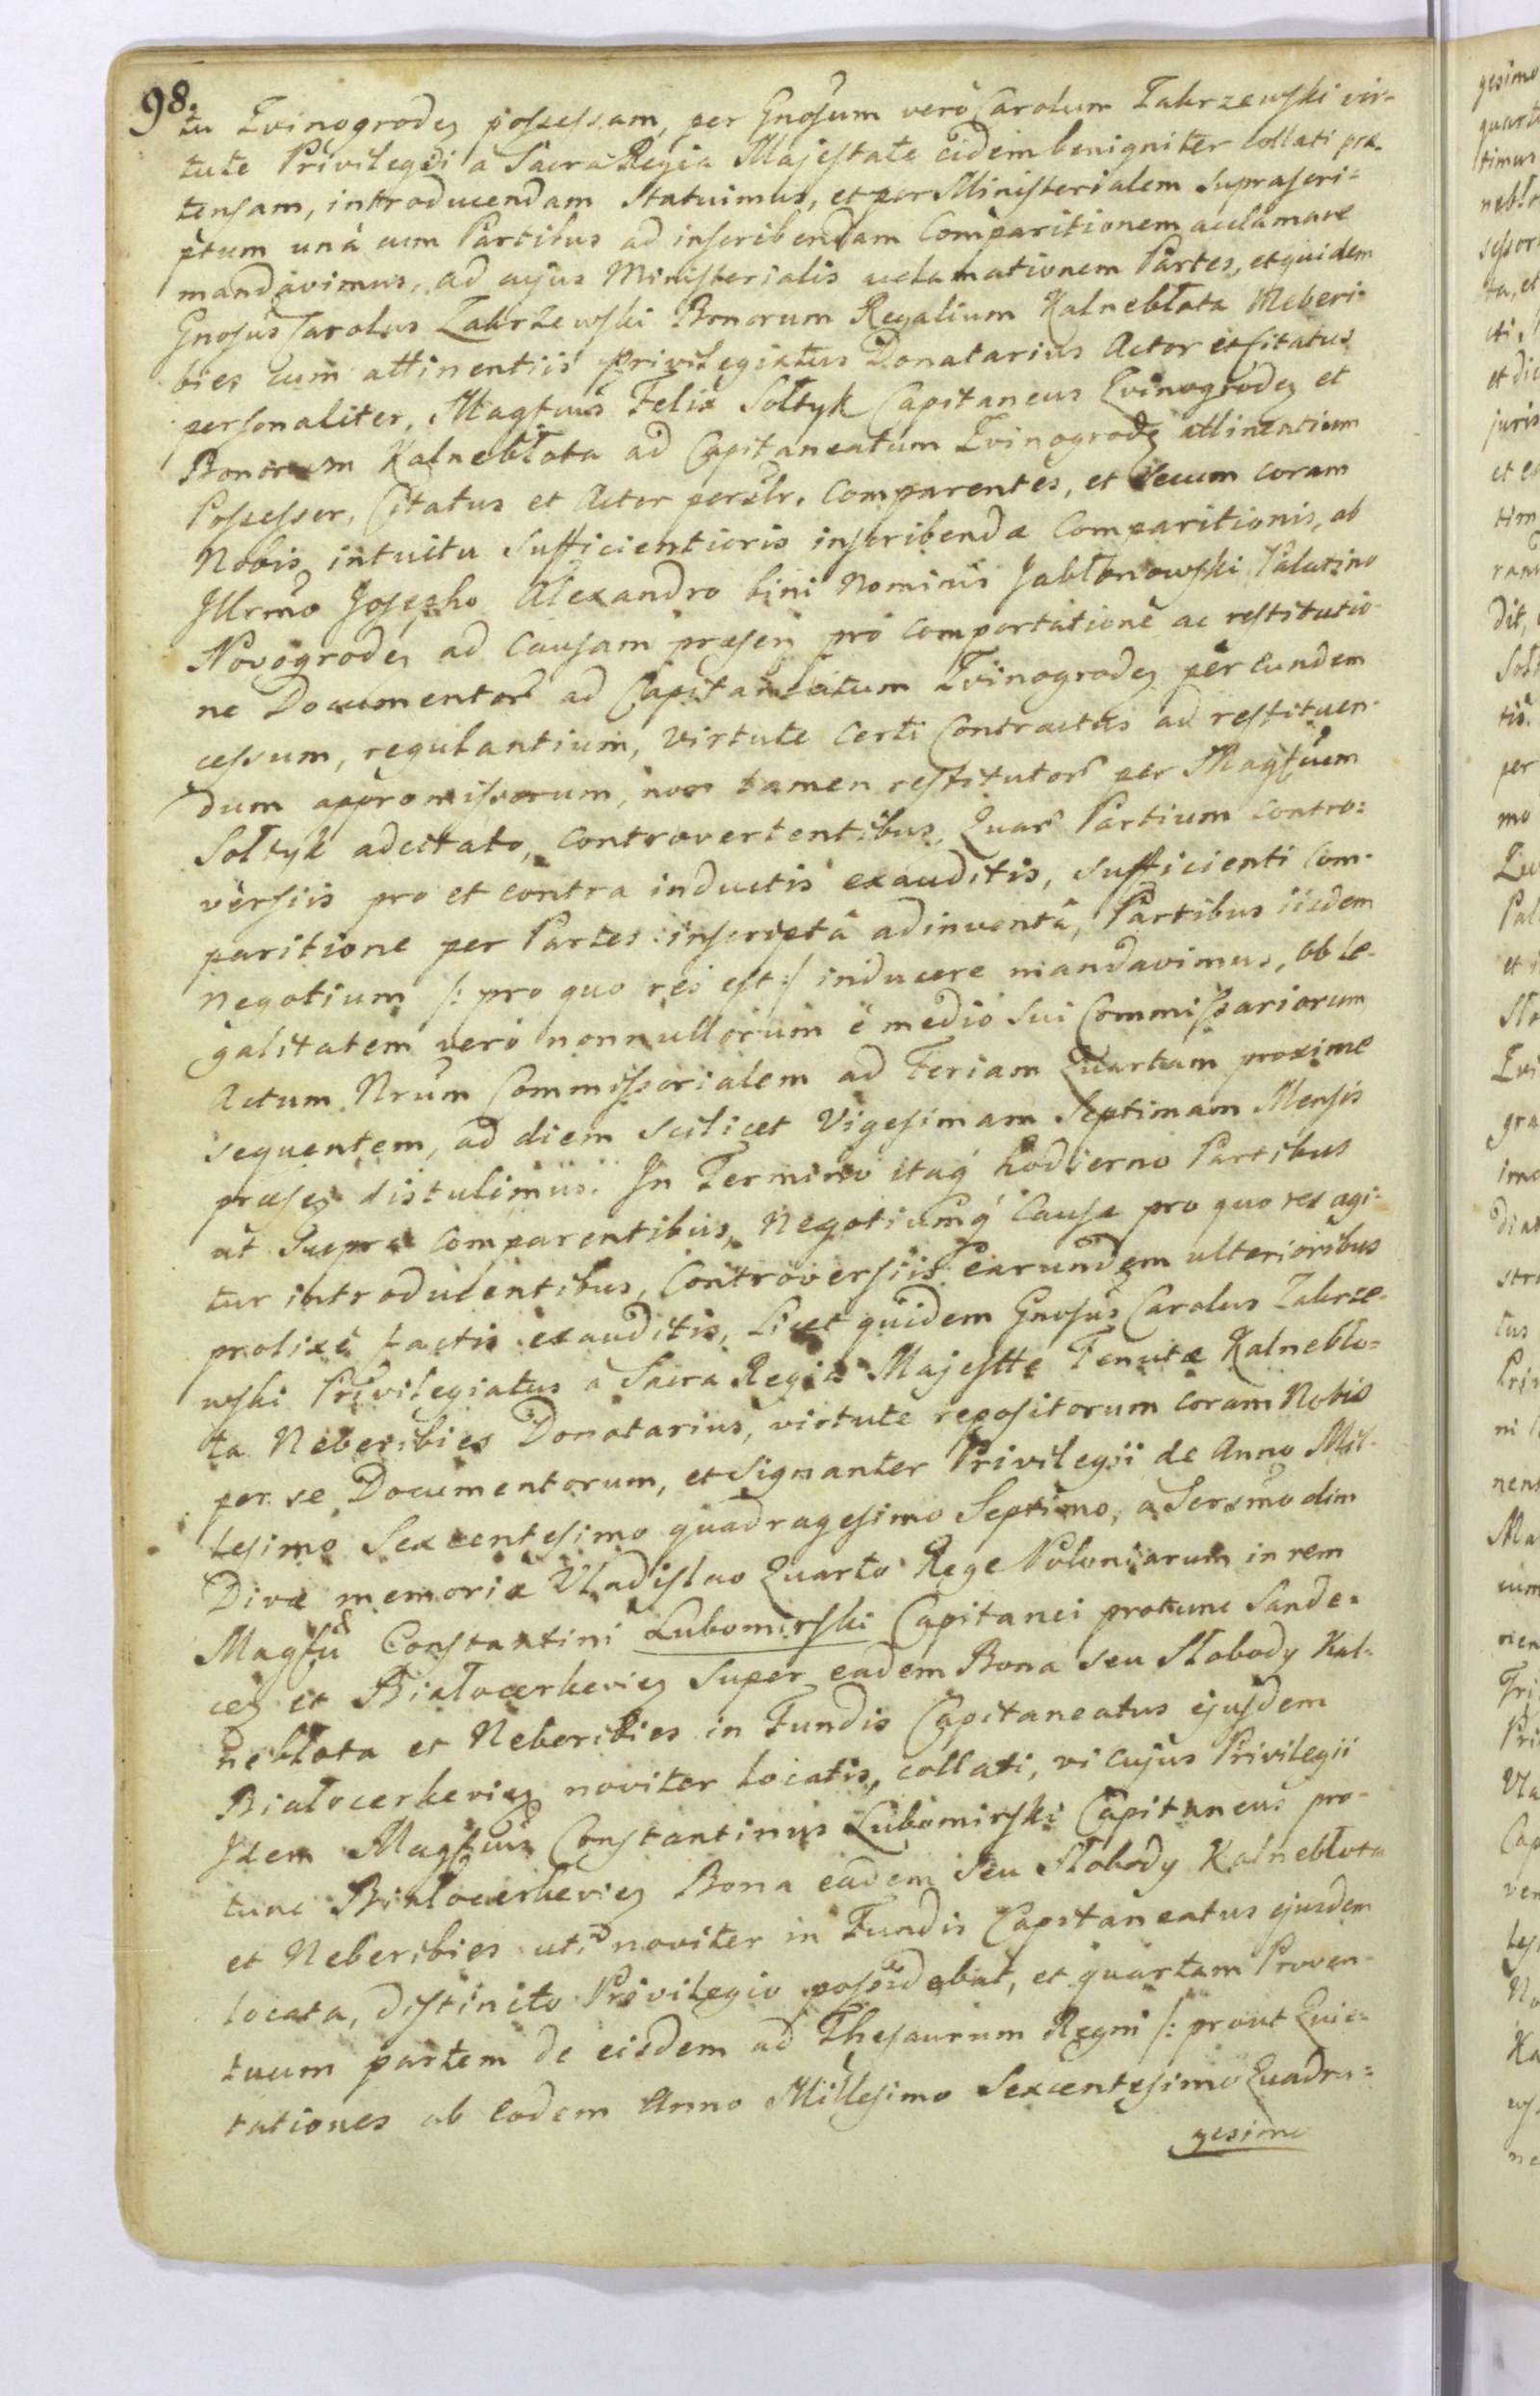 98.
tu Zvinogrodeń possessam, per Gnosum verò Carolum Zakrzewski vir-
tute Privilegii a Sacra Regia Majestate eidem benigniter collati præ-
tensam, introducendam Statuimus, et per Ministerialem suprascri=
ptum unà cum Partibus ad inscribendam Comparitionem acclamare
mandavimus, ad cujus Ministerialis acclamationem Partes, et quidem
Gnosus Carolus Zakrzewski Bonorum Regalium Kalnebłota Neberi-
bies cum attinentiis Privilegiatus Donatarius Actor et Citatus
personaliter, Magfcus Felix Sołtyk Capitaneus Zvinogrodeń et
Bonorum Kalnebłota ad Capitaneatum Zvinogrodeń attinentium
Possessor, Citatus et Actor perslr. Comparentes, et secum coram
Nobis intuitu Sufficientioris inscribendæ Comparitionis, ab
Illrmo Josepho Alexandro bini Nominis Jabłonowski Palatino
Novogrodeń ad Causam præseń pro comportatione ac restitutio-
ne Documentor ad Capitaneatum Zvinogrodeń per eundem
cessum, regulantium, virtute certi Contractus ad restituen-
dum appromissorum, non tamen restitutor per Magfcum
Sołtyk adcitato, controvertentibus, Quar Partium contro=
versiis pro et contra inductis exauditis, sufficienti Com-
paritione per Partes inscripta adinventâ, Partibus iisdem
negotium /: pro quo res est :/ inducere mandavimus, ob le-
galitatem verò nonnullorum è medio sui Commissariorum
Actum Nrum Commissorialem ad Feriam Quartam proxime
sequentem, ad diem scilicet Vigesimam Septimam Mensis
præseń distulimus. In Termino itaq hodierno Partibus
ut supra Comparentibus, Negotiumq Causæ pro quo res agi-
tur introducentibus, Controversiis Earundem ulterioribus
prolixè factis exauditis, Licet quidem Gnosus Carolus Zakrze-
wski Privilegiatus a Sacra Regia Majestte Tenutæ Kalnebło=
ta Neberibies Donatarius, virtute repositorum coram Nobis
per se Documentorum, et signanter Privilegii de Anno Mil-
lesimo Sexcentesimo quadragesimo Septimo, a Sermo olim
Divæ memoriæ Vladislao Quarto Rege Poloniarum in rem
Magfci Constantini Lubomirski Capitanei protunc Sande=
ceń et Białocerkevień super eadem Bona seu Słobody Kal-
nebłota et Neberibies in Fundis Capitaneatus ejusdem
Białocerkevień noviter locatis, collati, vi cujus Privilegii
Idem Magfcus Constantinus Lubomirski Capitaneus pro-
tunc Białocerkevień Bona eadem seu Słobody Kalnebłota
et Neberibies uti noviter in Fundis Capitaneatus ejusdem
locata, distincto Privilegio possidebat, et quartam Proven-
tuum partem de eisdem ad Thesaurum Regni /: prout Quie-
tationes ab eodem Anno Millesimo Sexcentesimo Quadra=
gesimo